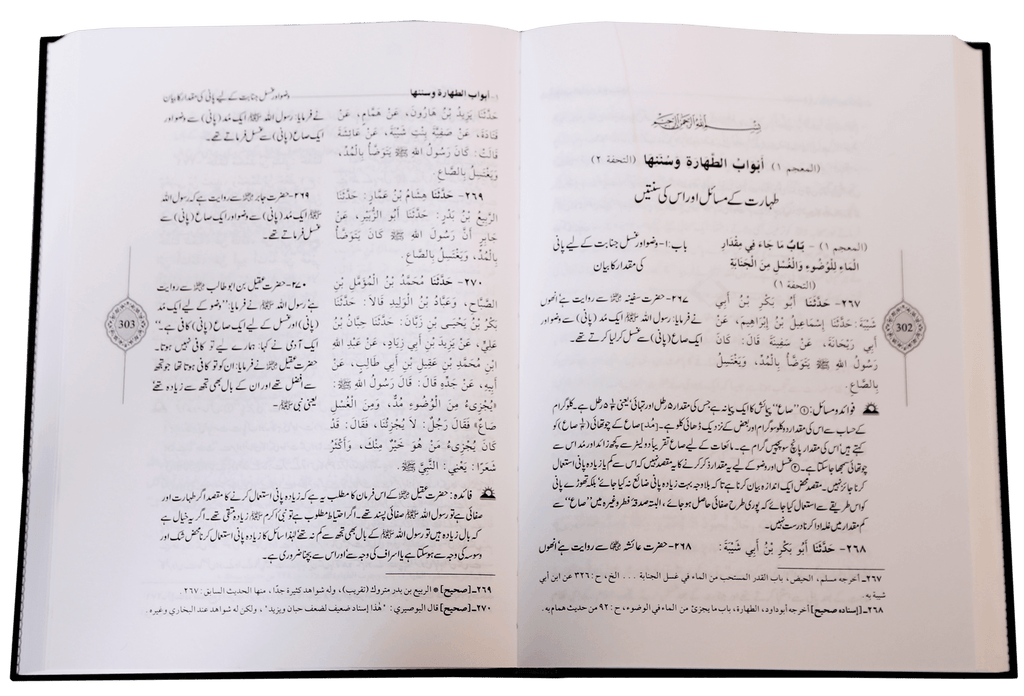 بسم الله الرحمن الرحيم
(المعجم ١) أَبْوَابُ الطَّهَارَةِ وَسُنَنِهَا (التحفة ٢)
طہارت کے مسائل اور اس کی سنتیں
(المعجم ١) - بَابُ مَا جَاءَ فِي مِقْدَارِ
الْمَاءِ لِلْوُضُوءِ وَالْغُسْلِ مِنَ الْجَنَابَةِ
(التحفة ١)
باب:۱- وضو اور غسل جنابت کے لیے پانی
کی مقدار کا بیان
٢٦٧- حَدَّثَنَا أَبُو بَكْرِ بْنُ أَبِي
شَيْبَةَ: حَدَّثَنَا إِسْمَاعِيلُ بْنُ إِبْرَاهِيمَ، عَنْ
أَبِي رَيْحَانَةَ، عَنْ سَفِينَةَ قَالَ: كَانَ
رَسُولُ اللهِ ﷺ يَتَوَضَّأُ بِالْمُدِّ، وَيَغْتَسِلُ
بِالصَّاعِ.
۲۶۷- حضرت سفینہ ؓ سے روایت ہے انھوں
نے فرمایا: رسول اللہ ﷺ ایک مُد (پانی) سے وضو اور
ایک صاع (پانی) سے غسل کر لیا کرتے تھے۔
302
فوائد و مسائل: ① ”صاع“ پیمائش کا ایک پیمانہ ہے جس کی مقدار ۵ رطل اور تہائی یعنی ⅓ ۵ رطل ہے۔ کلوگرام
کے حساب سے اس کی مقدار دو کلو سو گرام اور بعض کے نزدیک ڈھائی کلو ہے۔ [مُد] صاع کے چوتھائی (¼ صاع) کو
کہتے ہیں اس کی مقدار پانچ سو پچیس گرام ہے۔ مائعات کے لیے صاع تقریباً دو لیٹر سے کچھ زائد اور مُد اس سے
چوتھائی سمجھا جا سکتا ہے۔ ② غسل اور وضو کے لیے یہ مقدار ذکر کرنے کا یہ مقصد نہیں کہ اس سے کم یا زیادہ پانی استعمال
کرنا جائز نہیں۔ مقصد محض ایک اندازہ بیان کرنا ہے تاکہ بلاوجہ بہت زیادہ پانی ضائع نہ کیا جائے بلکہ تھوڑے پانی
کو اس طریقے سے استعمال کیا جائے کہ پوری طرح صفائی حاصل ہو جائے، البتہ صدقۂ فطر وغیرہ میں ”صاع“ سے
کم مقدار میں غلہ ادا کرنا درست نہیں۔
٢٦٨- حَدَّثَنَا أَبُو بَكْرِ بْنُ أَبِي شَيْبَةَ:
۲۶۸- حضرت عائشہ ؓ سے روایت ہے انھوں
٢٦٧- أخرجه مسلم، الحيض، باب القدر المستحب من الماء في غسل الجنابة ... الخ، ح: ٣٢٦ عن ابن أبي
شيبة به.
٢٦٨- [إسناده صحيح] أخرجه أبوداود، الطهارة، باب ما يجزئ من الماء في الوضوء، ح: ٩٢ من حديث همام به.
أبواب الطهارة وسننها
وضو اور غسل جنابت کے لیے پانی کی مقدار کا بیان
حَدَّثَنَا يَزِيدُ بْنُ هَارُونَ، عَنْ هَمَّامٍ، عَنْ
قَتَادَةَ، عَنْ صَفِيَّةَ بِنْتِ شَيْبَةَ، عَنْ عَائِشَةَ
قَالَتْ: كَانَ رَسُولُ اللهِ ﷺ يَتَوَضَّأُ بِالْمُدِّ،
وَيَغْتَسِلُ بِالصَّاعِ.
نے فرمایا: رسول اللہ ﷺ ایک مُد (پانی) سے وضو اور
ایک صاع (پانی) سے غسل فرماتے تھے۔
٢٦٩- حَدَّثَنَا هِشَامُ بْنُ عَمَّارٍ: حَدَّثَنَا
الرَّبِيعُ بْنُ بَدْرٍ: حَدَّثَنَا أَبُو الزُّبَيْرِ، عَنْ
جَابِرٍ أَنَّ رَسُولَ اللهِ ﷺ كَانَ يَتَوَضَّأُ
بِالْمُدِّ، وَيَغْتَسِلُ بِالصَّاعِ.
۲۶۹- حضرت جابر ؓ سے روایت ہے کہ رسول اللہ
ﷺ ایک مُد (پانی) سے وضو اور ایک صاع (پانی) سے
غسل فرماتے تھے۔
٢٧٠- حَدَّثَنَا مُحَمَّدُ بْنُ الْمُؤَمَّلِ بْنِ
الصَّبَّاحِ، وَعَبَّادُ بْنُ الْوَلِيدِ قَالَا: حَدَّثَنَا
بَكْرُ بْنُ يَحْيَى بْنِ زَبَّانَ: حَدَّثَنَا حِبَّانُ بْنُ
عَلِيٍّ، عَنْ يَزِيدَ بْنِ أَبِي زِيَادٍ، عَنْ عَبْدِ اللهِ
ابْنِ مُحَمَّدِ بْنِ عَقِيلِ بْنِ أَبِي طَالِبٍ، عَنْ
أَبِيهِ، عَنْ جَدِّهِ قَالَ: قَالَ رَسُولُ اللهِ ﷺ:
«يُجْزِىءُ مِنَ الْوُضُوءِ مُدٌّ، وَمِنَ الْغُسْلِ
صَاعٌ» فَقَالَ رَجُلٌ: لَا يُجْزِئُنَا، فَقَالَ: قَدْ
كَانَ يُجْزِىءُ مَنْ هُوَ خَيْرٌ مِنْكَ، وَأَكْثَرُ
شَعَرًا: يَعْنِي: النَّبِيَّ ﷺ.
۲۷۰- حضرت عقیل بن ابو طالب ؓ سے روایت
ہے رسول اللہ ﷺ نے فرمایا: ”وضو کے لیے ایک مُد
(پانی) اور غسل کے لیے ایک صاع (پانی) کافی ہے۔“
ایک آدمی نے کہا: ہمارے لیے تو کافی نہیں ہوتا۔
حضرت عقیل ؓ نے فرمایا: ان کو تو کافی ہوتا تھا جو تجھ
سے افضل تھے اور ان کے بال بھی تجھ سے زیادہ تھے
یعنی نبی ﷺ۔
303
فائدہ: حضرت عقیل ؓ کے اس فرمان کا مطلب یہ ہے کہ زیادہ پانی استعمال کرنے کا مقصد اگر طہارت اور
صفائی ہے تو رسول اللہ ﷺ صفائی پسند تھے۔ اگر احتیاط مطلوب ہے تو نبی اکرم ﷺ زیادہ متقی تھے۔ اگر یہ خیال ہے
کہ بال زیادہ ہیں تو رسول اللہ ﷺ کے بال بھی تجھ سے کم نہ تھے لہٰذا سائل کا زیادہ پانی استعمال کرنا محض شک اور
وسوسہ کی وجہ سے ہو سکتا ہے یا اسراف کی وجہ سے اور اس سے بچنا ضروری ہے۔
٢٦٩- [صحيح] * الربيع بن بدر متروك (تقريب)، وله شواهد كثيرة جدًا، منها الحديث السابق: ٢٦٧.
٢٧٠- [صحيح] قال البوصيري: "هذا إسناد ضعيف لضعف حبان ويزيد"، ولكن له شواهد عند البخاري وغيره.